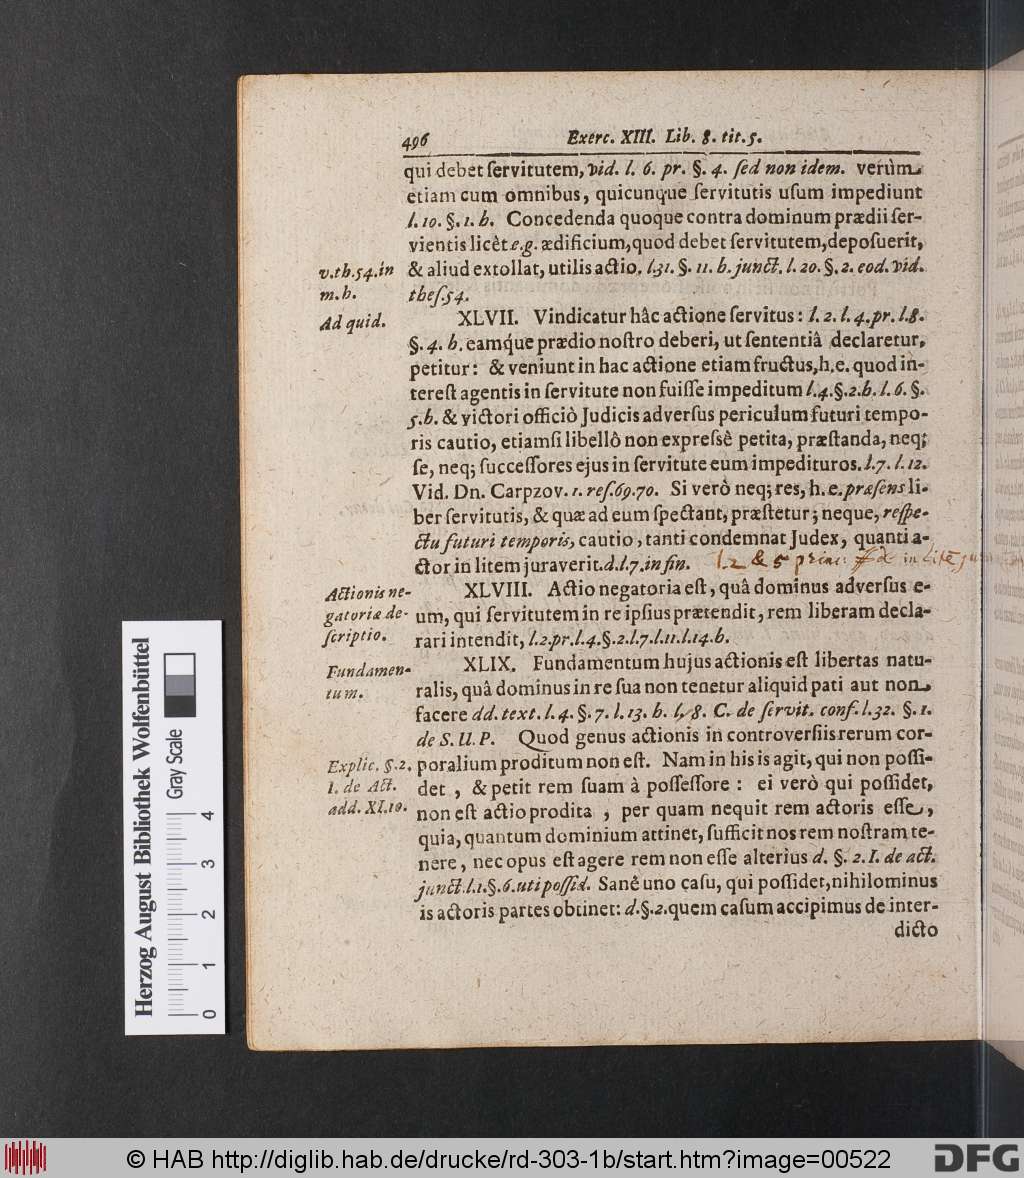 496 Exerc. XIII. Lib. 8. tit. 5.
qui debet ſervitutem, vid. l. 6. pr. §. 4. ſed non idem. verùm
etiam cum omnibus, quicunque ſervitutis uſum impediunt
l. 10. §. 1. h. Concedenda quoque contra dominum prædii ſer-
vientis licèt e.g. ædificium, quod debet ſervitutem, depoſuerit,
v. th. 54. in
m. h.
& aliud extollat, utilis actio. l. 31. §. 11. h. junct. l. 20. §. 2. eod. vid.
theſ. 54.
Ad quid.
XLVII. Vindicatur hâc actione ſervitus: l. 2. l. 4. pr. l. 8.
§. 4. h. eamq́ue prædio noſtro deberi, ut ſententiâ declaretur,
petitur: & veniunt in hac actione etiam fructus, h.e. quod in-
tereſt agentis in ſervitute non fuiſſe impeditum l. 4. §. 2. h. l. 6. §.
5. h. & victori officiô Judicis adverſus periculum futuri tempo-
ris cautio, etiamſi libellô non expreſsè petita, præſtanda, neq;
ſe, neq; ſucceſſores ejus in ſervitute eum impedituros. l. 7. l. 12.
Vid. Dn. Carpzov. 1. reſ. 69. 70. Si verò neq; res, h. e. præſens li-
ber ſervitutis, & quæ ad eum ſpectant, præſtetur; neque, reſpe-
ctu futuri temporis, cautio, tanti condemnat Judex, quanti a-
ctor in litem juraverit. d. l. 7. in fin. l. 2 & 5 princ: ff de in litē
Actionis ne-
gatoriæ de-
ſcriptio.
XLVIII. Actio negatoria eſt, quâ dominus adverſus e-
um, qui ſervitutem in re ipſius prætendit, rem liberam decla-
rari intendit, l. 2. pr. l. 4. §. 2. l. 7. l. 11. l. 14. h.
Fundamen-
tum.
XLIX. Fundamentum hujus actionis eſt libertas natu-
ralis, quâ dominus in re ſua non tenetur aliquid pati aut non
facere dd. text. l. 4. §. 7. l. 13. h. l. 8. C. de ſervit. conf. l. 32. §. 1.
de S. U. P. Quod genus actionis in controverſiis rerum cor-
Explic. §. 2.
I. de Act.
add. XI. 10.
poralium proditum non eſt. Nam in his is agit, qui non poſſi-
det, & petit rem ſuam à poſſeſſore: ei verò qui poſſidet,
non eſt actio prodita, per quam nequit rem actoris eſſe,
quia, quantum dominium attinet, ſufficit nos rem noſtram te-
nere, nec opus eſt agere rem non eſſe alterius d. §. 2. I. de act.
junct. l. 1. §. 6. uti poſſid. Sanè uno caſu, qui poſſidet, nihilominus
is actoris partes obtinet: d. §. 2. quem caſum accipimus de inter-
dicto
Herzog August Bibliothek Wolfenbüttel
Gray Scale
0 1 2 3 4
© HAB http://diglib.hab.de/drucke/rd-303-1b/start.htm?image=00522
DFG